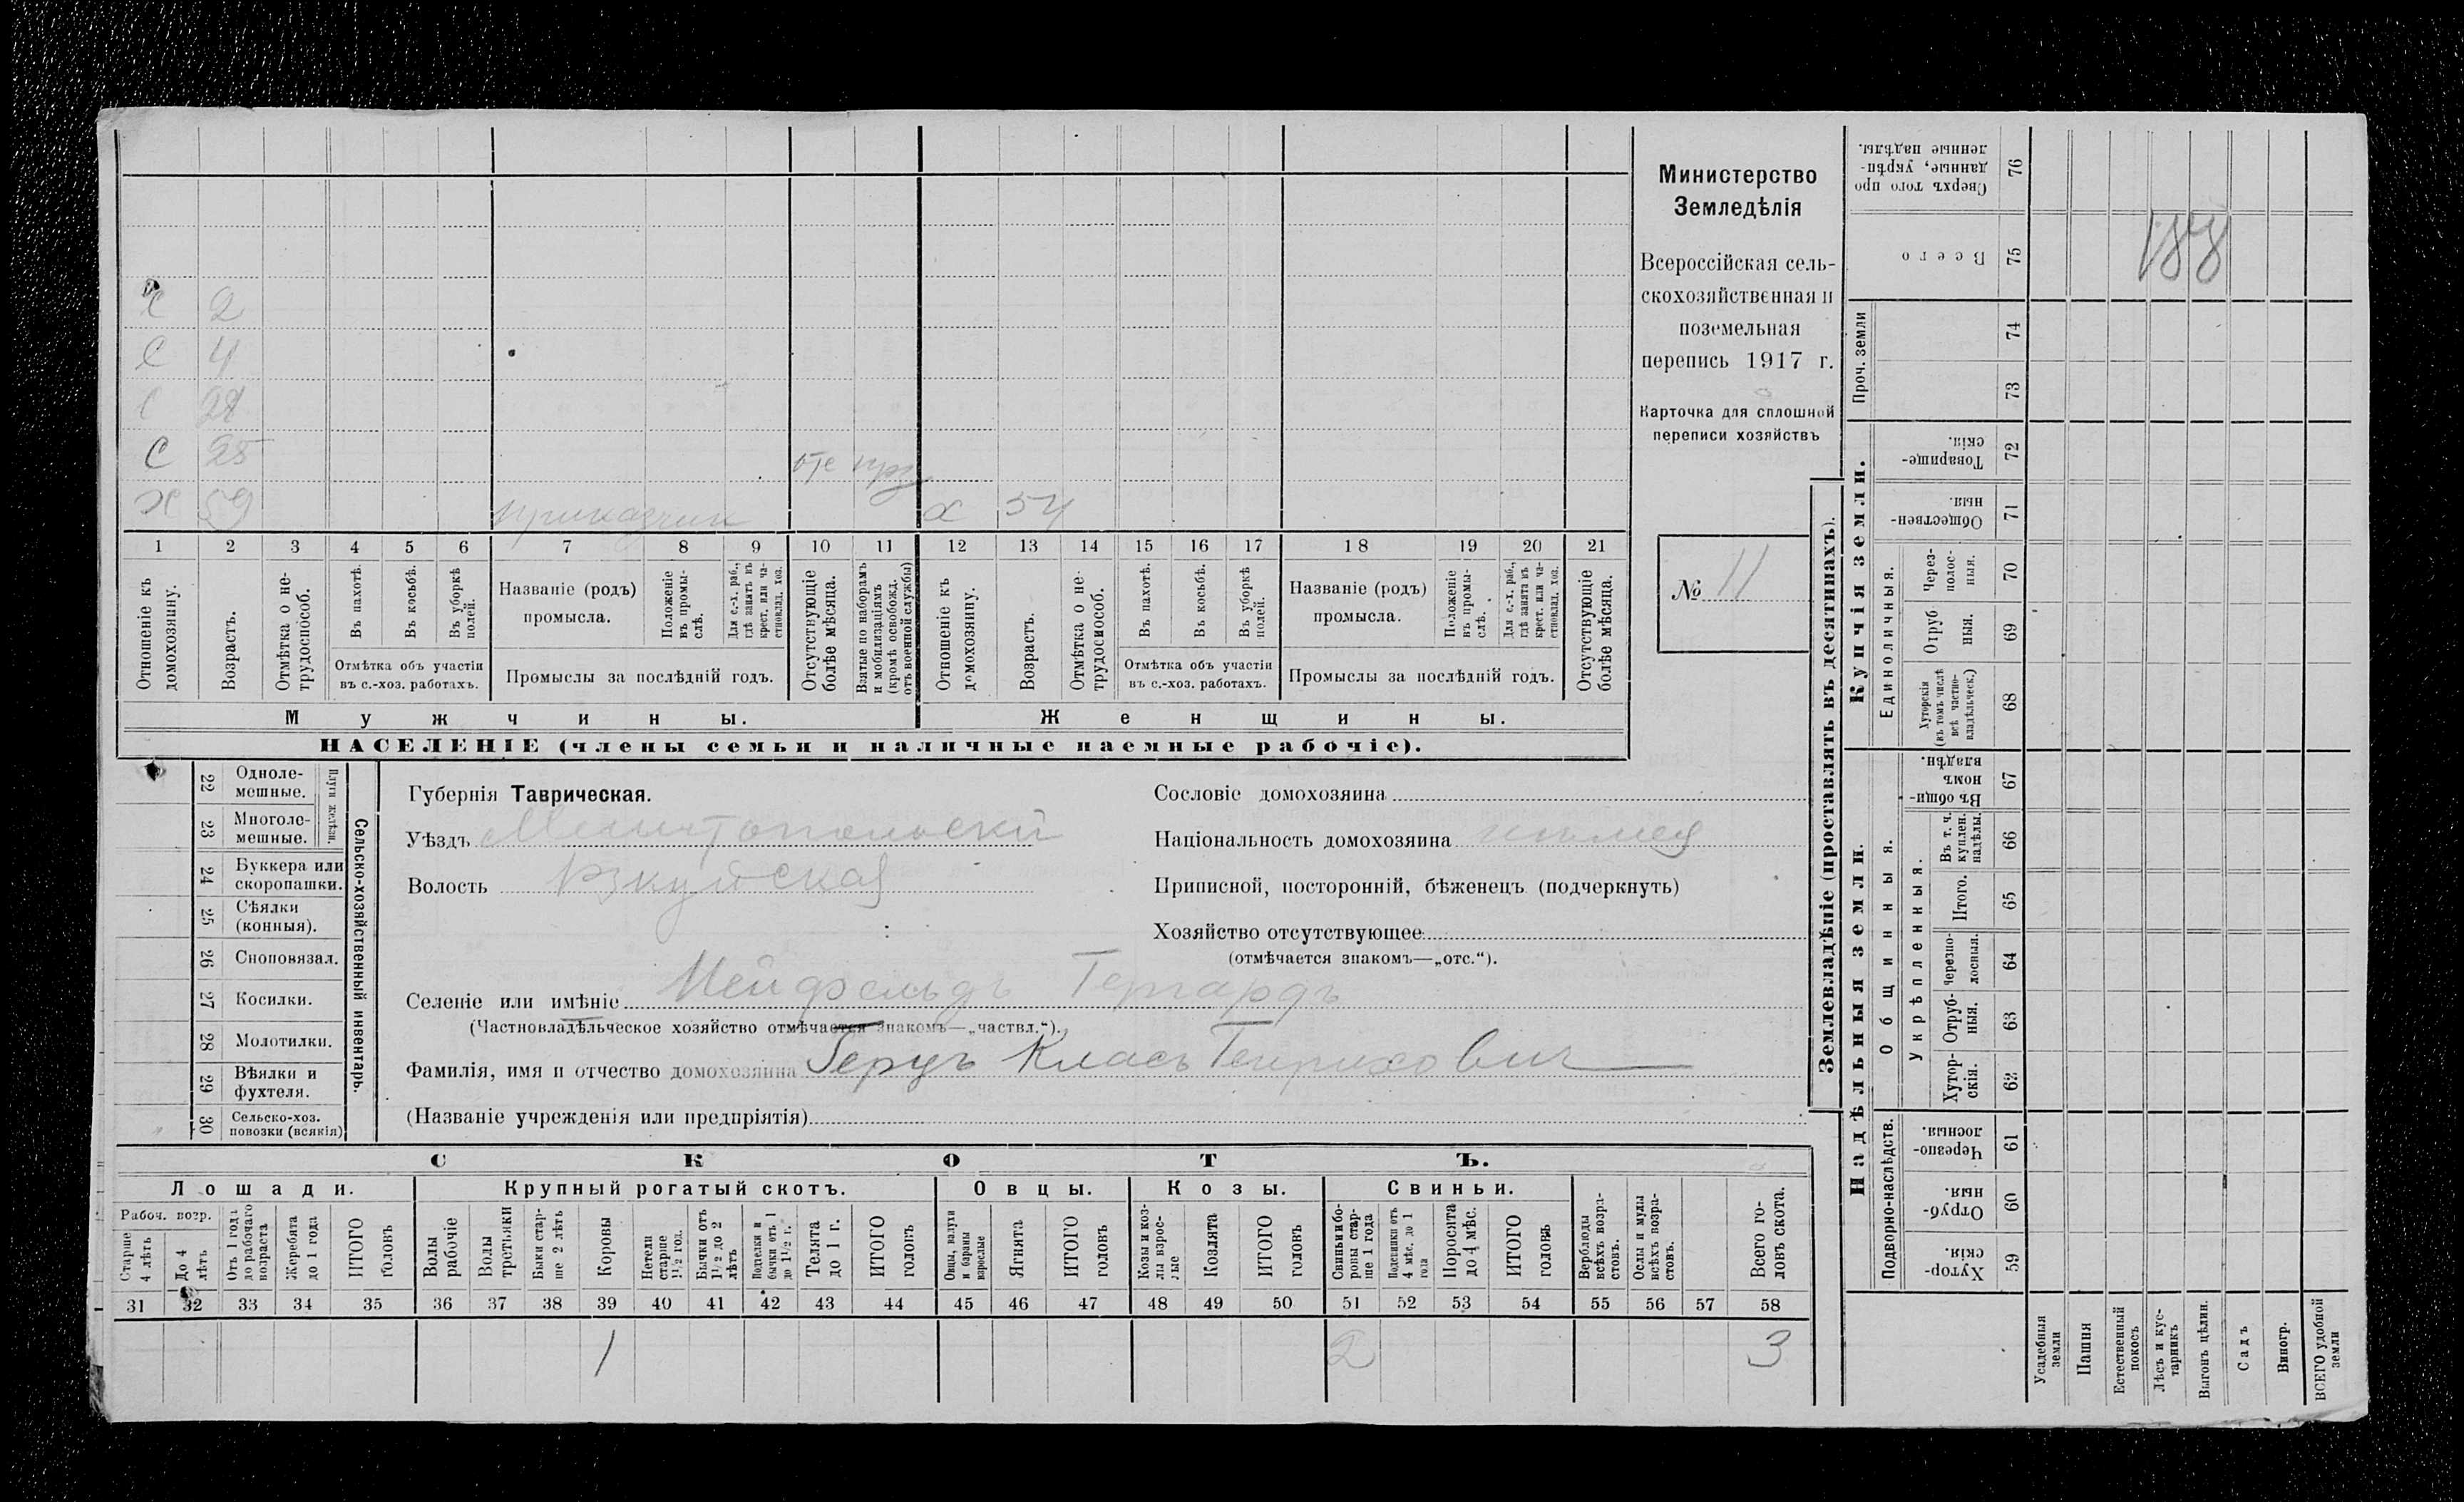 2
С 4
С 28
С 25 отс прз
Х 59 приказчик х 54
1 2 3 4 5 6 7 8 9 10 11 12 13 14 15 16 17 18 19 20 21
Отношеніе къ домохозяину.
Возрастъ.
Отмѣтка о не-
трудоспособ.
Въ пахотѣ.
Въ косьбѣ.
Въ уборкѣ полей.
Отмѣтка объ участіи
въ с.-хоз. работахъ.
Названіе (родъ)
промысла.
Положеніе
въ промы-
слѣ.
Для с.-х. раб.,
гдѣ занятъ въ
крест. или ча-
стновлад. хоз.
Промыслы за послѣдній годъ.
Отсутствующіе
болѣе мѣсяца.
Взятые по наборамъ
и мобилизаціямъ
(кромѣ освобожд.
отъ военной службы)
Отношеніе къ
домохозяину.
Возрастъ.
Отмѣтка о не-
трудоспособ.
Въ пахотѣ.
Въ косьбѣ.
Въ уборкѣ
полей.
Отмѣтка объ участіи
въ с.-хоз. работахъ.
Названіе (родъ)
промысла.
Положеніе
въ промы-
слѣ.
Для с.-х. раб.,
гдѣ занята въ
крест. или ча-
стновлад. хоз.
Промыслы за послѣдній годъ.
Отсутствующіе
болѣе мѣсяца.
Мужчины.
Женщины.
НАСЕЛЕНІЕ (члены семьи и наличные наемные рабочіе).
Министерство
Земледѣлія
Всероссійская сель-
скохозяйственная и
поземельная
перепись 1917 г.
Карточка для сплошной
переписи хозяйствъ
№ 11
22 Одноле-
мешные.
23 Многоле-
мешные.
Плуги желѣзн.
24 Буккера или
скоропашки.
25 Сѣялки
(конныя).
26 Сноповязал.
27 Косилки.
28 Молотилки.
29 Вѣялки и
фухтеля.
30 Сельско-хоз.
повозки (всякія)
Сельско-хозяйственный инвентарь.
Губернія Таврическая.
Уѣздъ Мелитопольскій
Волость
Селеніе или имѣніе Нейфельдъ Гергардъ
(Частновладѣльческое хозяйство отмѣчается знакомъ—„частвл.“).
Фамилія, имя и отчество домохозяина Герцъ Класъ Генриховичъ
(Названіе учрежденія или предпріятія)
Сословіе домохозяина
Національность домохозяина нѣмец
Приписной, посторонній, бѣженецъ (подчеркнуть)
Хозяйство отсутствующее
(отмѣчается знакомъ—„отс.“).
СКОТЪ.
Лошади.
Крупный рогатый скотъ.
Овцы.
Козы.
Свиньи.
Рабоч. возр.
Старше
4 лѣтъ
До 4
лѣтъ
Отъ 1 года
до рабочаго
возраста
Жеребята
до 1 года
ИТОГО
головъ
Волы
рабочіе
Волы
третьяки
Быки стар-
ше 2 лѣтъ
Коровы
Нетели
старше
1½ год.
Бычки отъ
1½ до 2
лѣтъ
Подтелки и
бычки отъ 1
до 1½ г.
Телята
до 1 г.
ИТОГО
головъ
Овцы, валухи
и бараны
взрослые
Ягнята
ИТОГО
головъ
Козы и коз-
лы взрос-
лые
Козлята
ИТОГО
головъ
Свиньи и бо-
ровы стар-
ше 1 года
Подсвинки отъ
4 мѣс. до 1
года
Поросята
до 4 мѣс.
ИТОГО
головъ
Верблюды
всѣхъ возра-
стовъ.
Ослы и мулы
всѣхъ возра-
стовъ.
Всего го-
ловъ скота.
31 32 33 34 35 36 37 38 39 40 41 42 43 44 45 46 47 48 49 50 51 52 53 54 55 56 57 58
1 2 3
Землевладѣніе (проставлять въ десятинахъ).
Надѣльныя земли.
Купчія земли.
Проч. земли
Подворно-наслѣдств.
Общинныя.
Укрѣпленныя.
Единоличныя.
Сверхъ того про
данные, укрѣп-
ленные надѣлы. 76
Всего 75
188
74
73
Товарище-
скія. 72
Обществен-
ныя. 71
Через-
полос-
ныя. 70
Отруб
ныя. 69
Хуторскія
(въ томъ числѣ
всѣ частно-
владѣльческ.) 68
Въ общи-
номъ
владѣн. 67
Въ т. ч.
куплен.
надѣлы. 66
Итого. 65
Черезпо-
лосныя. 64
Отруб-
ныя. 63
Хутор-
скія. 62
Черезпо-
лосныя. 61
Отруб-
ныя. 60
Хутор-
скія. 59
Усадебныя
земли
Пашня
Естественный
покосъ
Лѣсъ и кус-
тарникъ
Выгонъ цѣлин.
Садъ
Виногр.
ВСЕГО удобной
земли